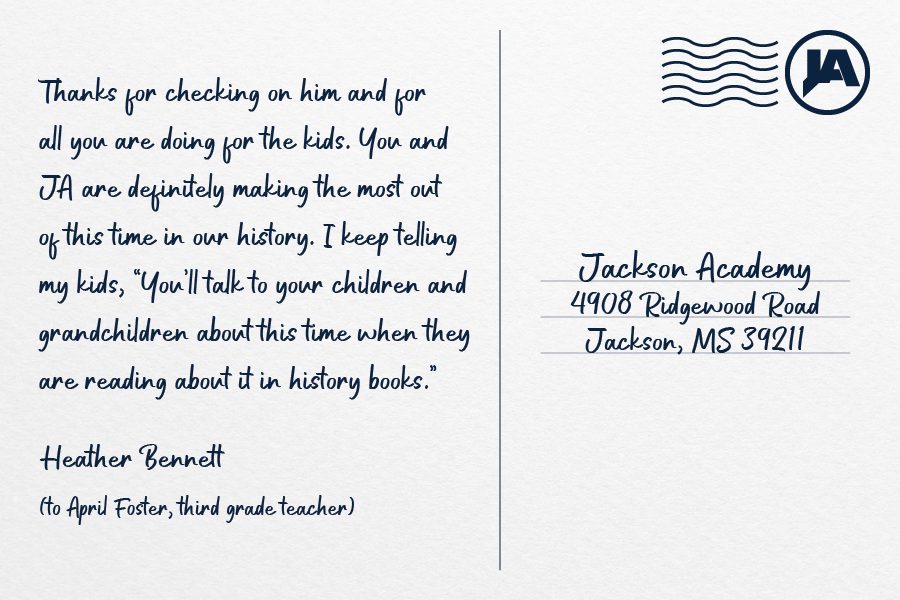 Thanks for checking on him and for
all you are doing for the kids. You and
JA are definitely making the most out
of this time in our history. I keep telling
my kids, “You’ll talk to your children and
grandchildren about this time when they
are reading about it in history books.”
Heather Bennett
(to April Foster, third grade teacher)
JA
Jackson Academy
4908 Ridgewood Road
Jackson, MS 39211